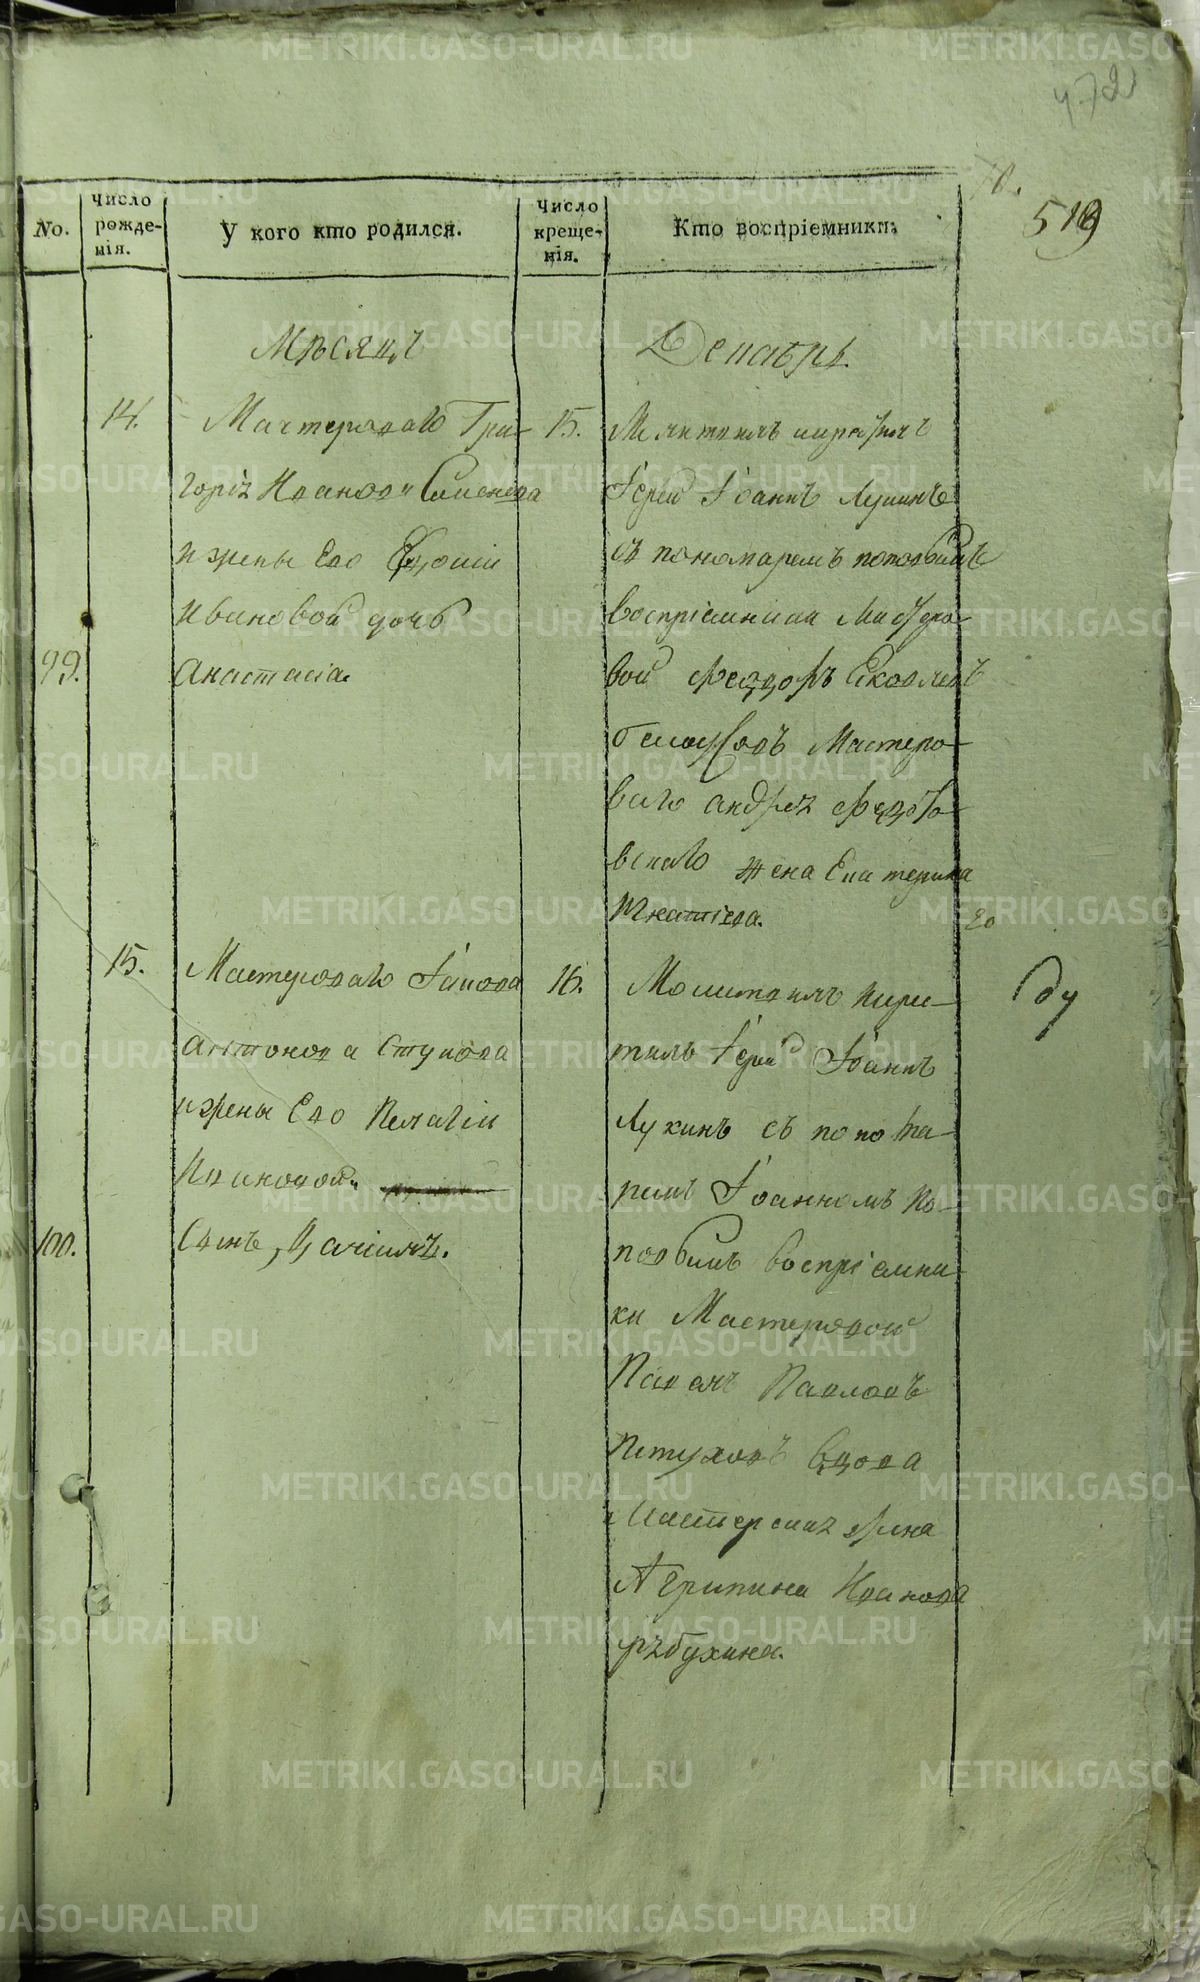 472
519
No.
Число рожде-нія.
У кого кто родился.
Число креще-нія.
Кто воспріемники.
Мѣсяцъ
Декабрь.
14.
Мастероваго Гри-
горія Иванова Семенова
и жены Его
Ивановой дочь
99.
Анастасія.
15.
Молитвилъ и крестилъ
Іерей Іоаннъ Лукинъ
съ пономаремъ Поповымъ
воспріемники Мастеро-
вой Федоръ Яковлевъ
Мастеро-
ваго Андрея Федо
жена Екатерина
Игнатіева.
20
15.
Мастероваго Іакова
Антонова Ступова
и жены Его Пелагіи
Ивановой
100.
Сынъ, Даніилъ.
16.
Молитвилъ и крес-
тилъ Іерей Іоаннъ
Лукинъ съ понома-
ремъ Іоанномъ По-
повымъ воспріемни-
ки Мастеровой
Павелъ Павловъ
Петуховъ вдова
Мастерская жена
Агрипина Иванова
рябухина.